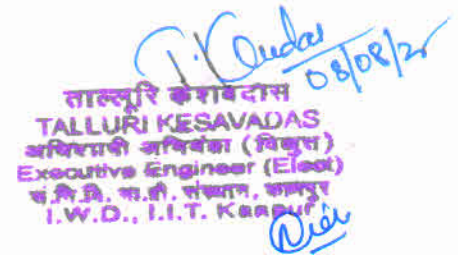 08/08/2
ताल्लूरि केशवदास
TALLURI KESAVADAS
अधिशासी अभियंता (विद्युत)
Executive Engineer (Elect)
सं.नि.वि. भा.प्रौ. संस्थान, कानपुर
I.W.D., I.I.T. Kanpur